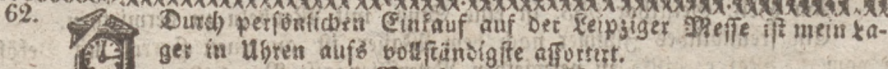 62.
Durch persönlichen Einkauf auf der Leipziger Messe ist mein La-
ger in Uhren aufs vollständigste assortirt.